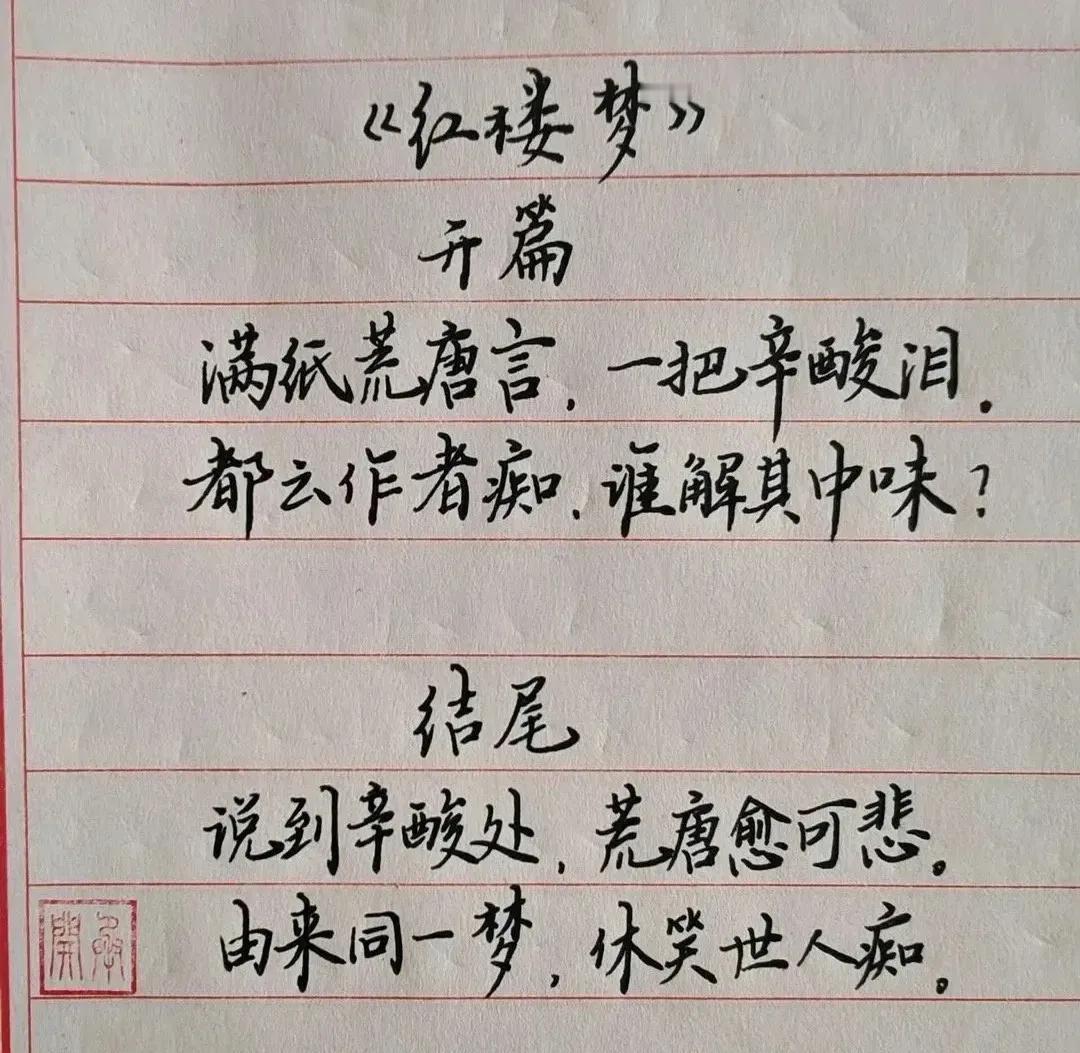 《红楼梦》
开篇
满纸荒唐言，一把辛酸泪．
都云作者痴．谁解其中味？
结尾
说到辛酸处，荒唐愈可悲。
由来同一梦，休笑世人痴。